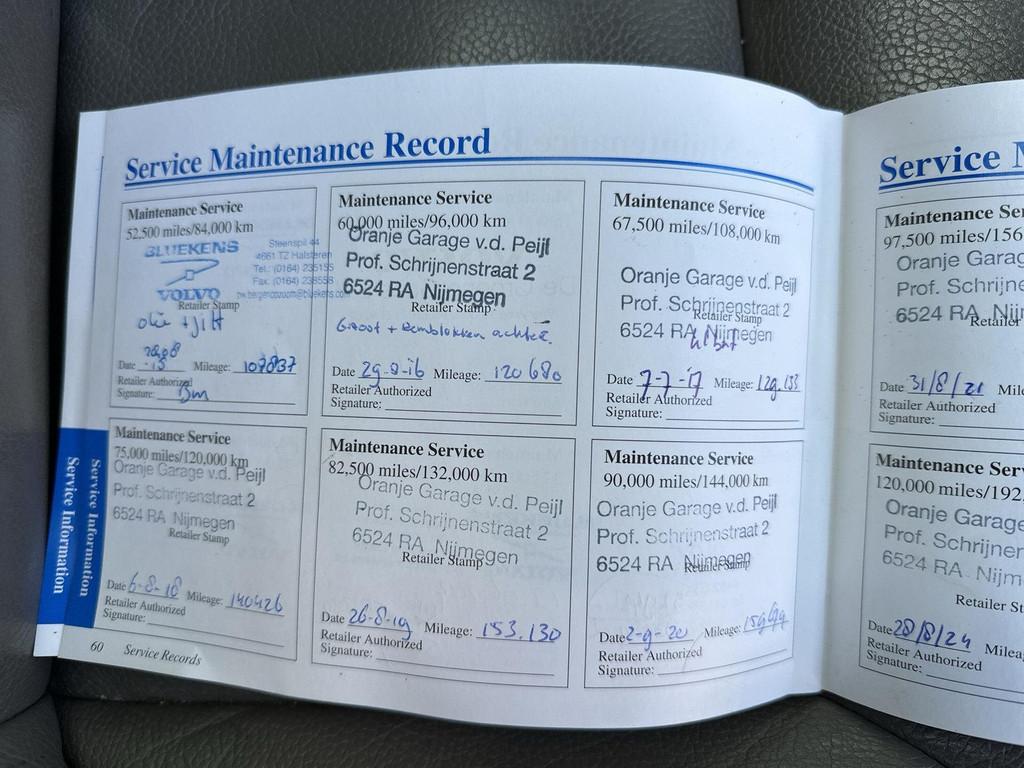 Service Maintenance Record
Maintenance Service
52,500 miles/84,000 km
BLUEKENS
VOLVO
Steenspil 44
4661 TZ Halsteren
Tel.: (0164) 235155
Retailer Stamp
Date Mileage: 107837
Retailer Authorized
Signature:
Maintenance Service
60,000 miles/96,000 km
Oranje Garage v.d. Peijl
Prof. Schrijnenstraat 2
6524 RA Nijmegen
Retailer Stamp
Groot + Remblokken achter.
Date 29-8-16 Mileage: 120680
Retailer Authorized
Signature:
Maintenance Service
67,500 miles/108,000 km
Oranje Garage v.d. Peijl
Prof. Schrijnenstraat 2
Retailer Stamp
6524 RA Nijmegen
Date 7-7-17 Mileage: 129.133
Retailer Authorized
Signature:
Maintenance Service
75,000 miles/120,000 km
Oranje Garage v.d. Peijl
Prof. Schrijnenstraat 2
6524 RA Nijmegen
Retailer Stamp
Date 6-8-18 Mileage: 140426
Retailer Authorized
Signature:
Maintenance Service
82,500 miles/132,000 km
Oranje Garage v.d. Peijl
Prof. Schrijnenstraat 2
6524 RA Nijmegen
Retailer Stamp
Date 26-8-19 Mileage: 153.130
Retailer Authorized
Signature:
Maintenance Service
90,000 miles/144,000 km
Oranje Garage v.d. Peijl
Prof. Schrijnenstraat 2
6524 RA Nijmegen
Retailer Stamp
Date 2-9-20 Mileage:
Retailer Authorized
Signature:
Service Information
Service Information
60 Service Records
Service M
Maintenance Ser
97,500 miles/156
Oranje Garage
Prof. Schrijne
6524 RA Nijm
Retailer
Date 31/8/21 Mile
Retailer Authorized
Signature:
Maintenance Ser
120,000 miles/192
Oranje Garage
Prof. Schrijnen
6524 RA Nijm
Retailer St
Date 28/8/24 Milea
Retailer Authorized
Signature: